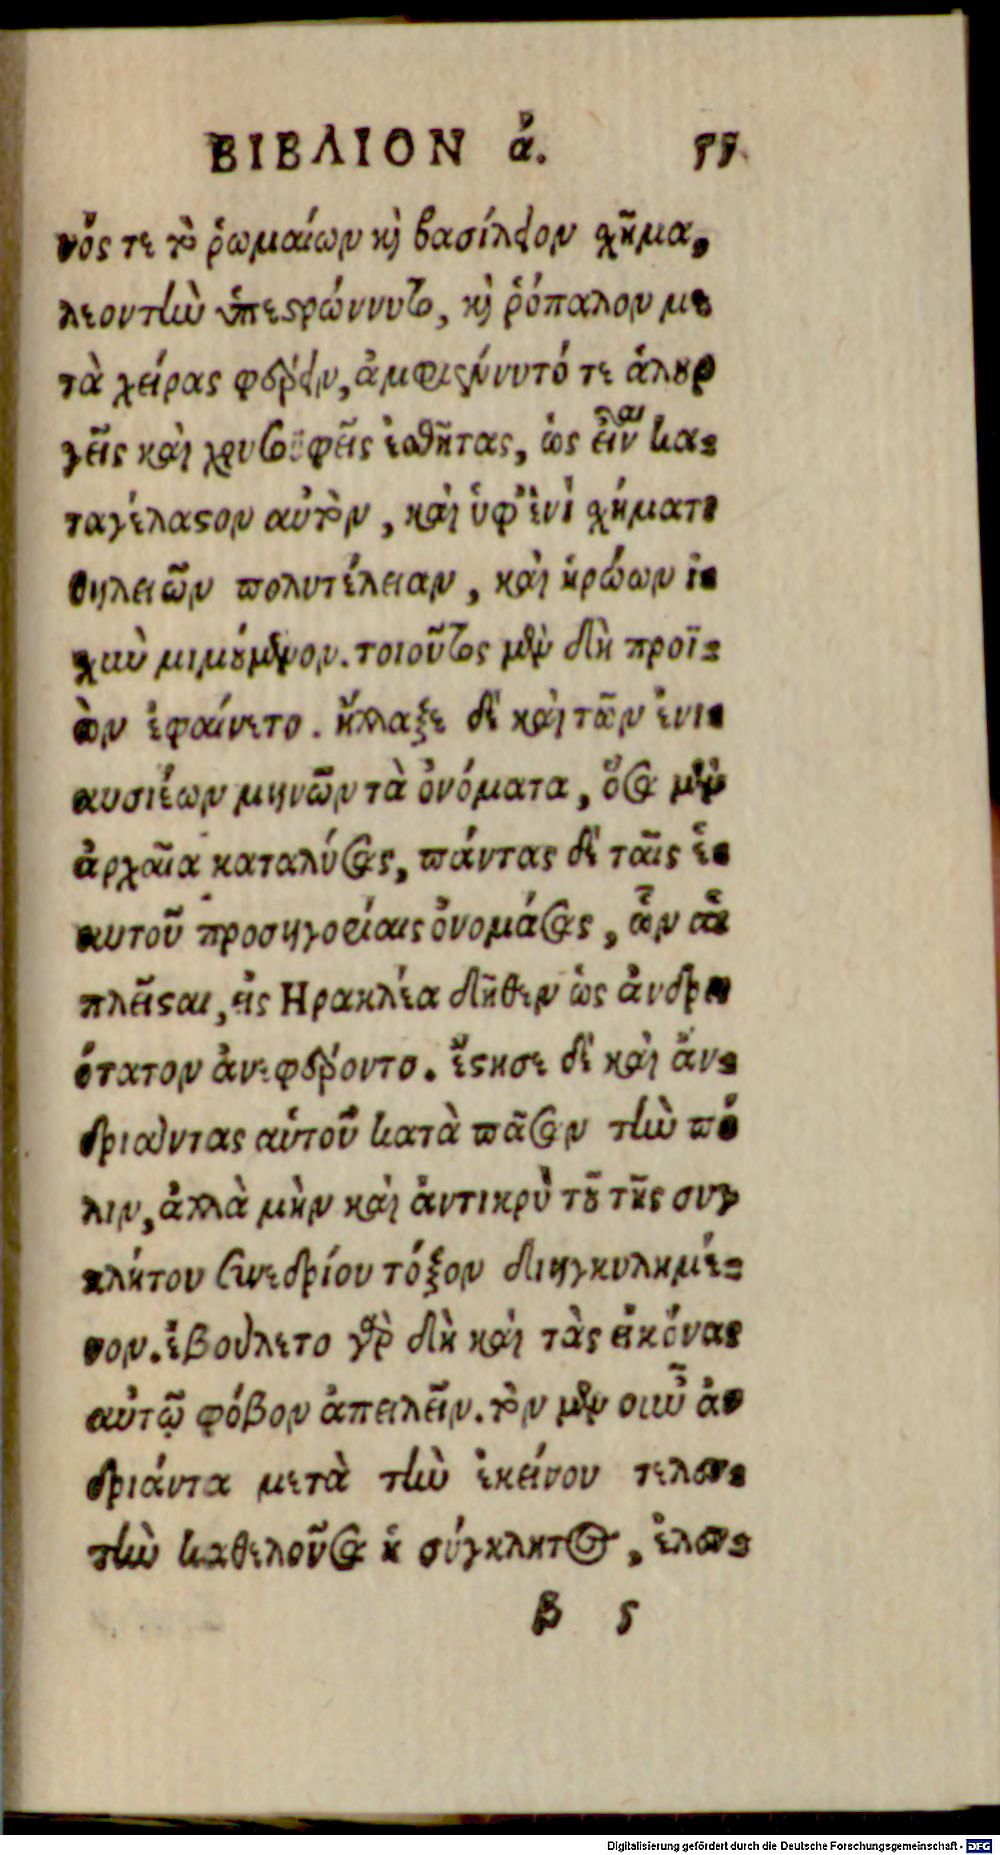 ΒΙΒΛΙΟΝ ά. 55
νός τε τὸ ῥωμαίων καὶ βασίλειον χῆμα,
λεοντὴν ὑπεστρώννυτο, καὶ ῥόπαλον με
τὰ χεῖρας φέρειν, ἀμφιέννυτό τε ἁλουρ
γεῖς καὶ χρυσοϋφεῖς ἐσθῆτας, ὡς εἶναι κα-
ταγέλαστον αὐτὸν, καὶ ὑφ' ἑνὶ χήματι
θηλειῶν πολυτέλειαν, καὶ ἡρώων ἰ-
χὺν μιμούμενον. τοιοῦτος μὲν δὴ προϊ-
ὼν ἐφαίνετο. ἤλλαξε δὲ καὶ τῶν ἐνι-
αυσιέων μηνῶν τὰ ὀνόματα, ὅσα μὲν
ἀρχαῖα καταλύσας, πάντας δὲ ταῖς ἑ-
αυτοῦ προσηγορίαις ὀνομάσας, ὧν αἱ
πλεῖσται, εἰς Ηρακλέα δῆθεν ὡς ἀνδρει
ότατον ἀνεφέροντο. ἔστησε δὲ καὶ ἀν-
δριάντας αὑτοῦ κατὰ πᾶσαν τὴν πό
λιν, ἀλλὰ μὴν καὶ ἀντικρὺ τοῦ τῆς συγ
κλήτου συνεδρίου τόξον διηγκυλημέ-
νον. ἐβούλετο γὰρ δὴ καὶ τὰς εἰκόνας
αὐτῷ φόβον ἀπειλεῖν. τὸν μὲν οὖν ἀν
δριάντα μετὰ τὴν ἐκείνου τελευ-
τὴν καθελοῦσα ἡ σύγκλητος, ἐλευ-
β 5
Digitalisierung gefördert durch die Deutsche Forschungsgemeinschaft - DFG